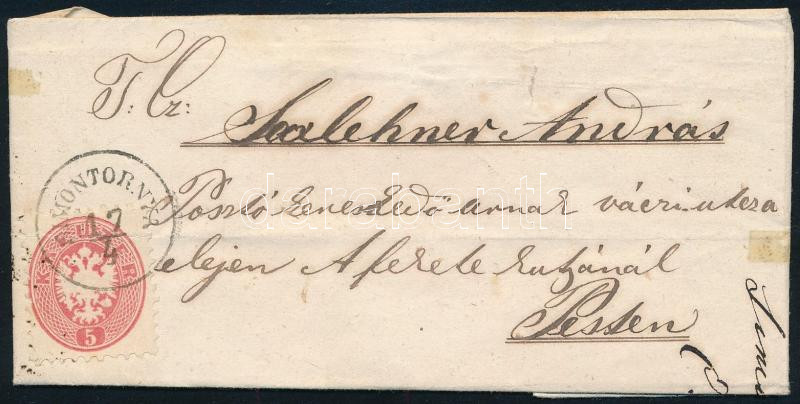 T. Cz:
Saxlehner András
Posztó kereskedő urnak váczi utcza
elejen A fekete kutyánál
Pesten
MONTORNYA
17
4
KREUZER
5
darabanth